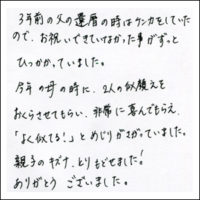 3年前の父の還暦の時はケンカをしていた
ので、お祝いできていなかった事がずっと
ひっかかっていました。
今年の母の時に、2人の似顔えを
おくらさせてもらい、非常に喜んでもらえ、
「よく似てる!」とめじりがさがっていました。
親子のキズナ、とりもどせました!
ありがとう ございました。